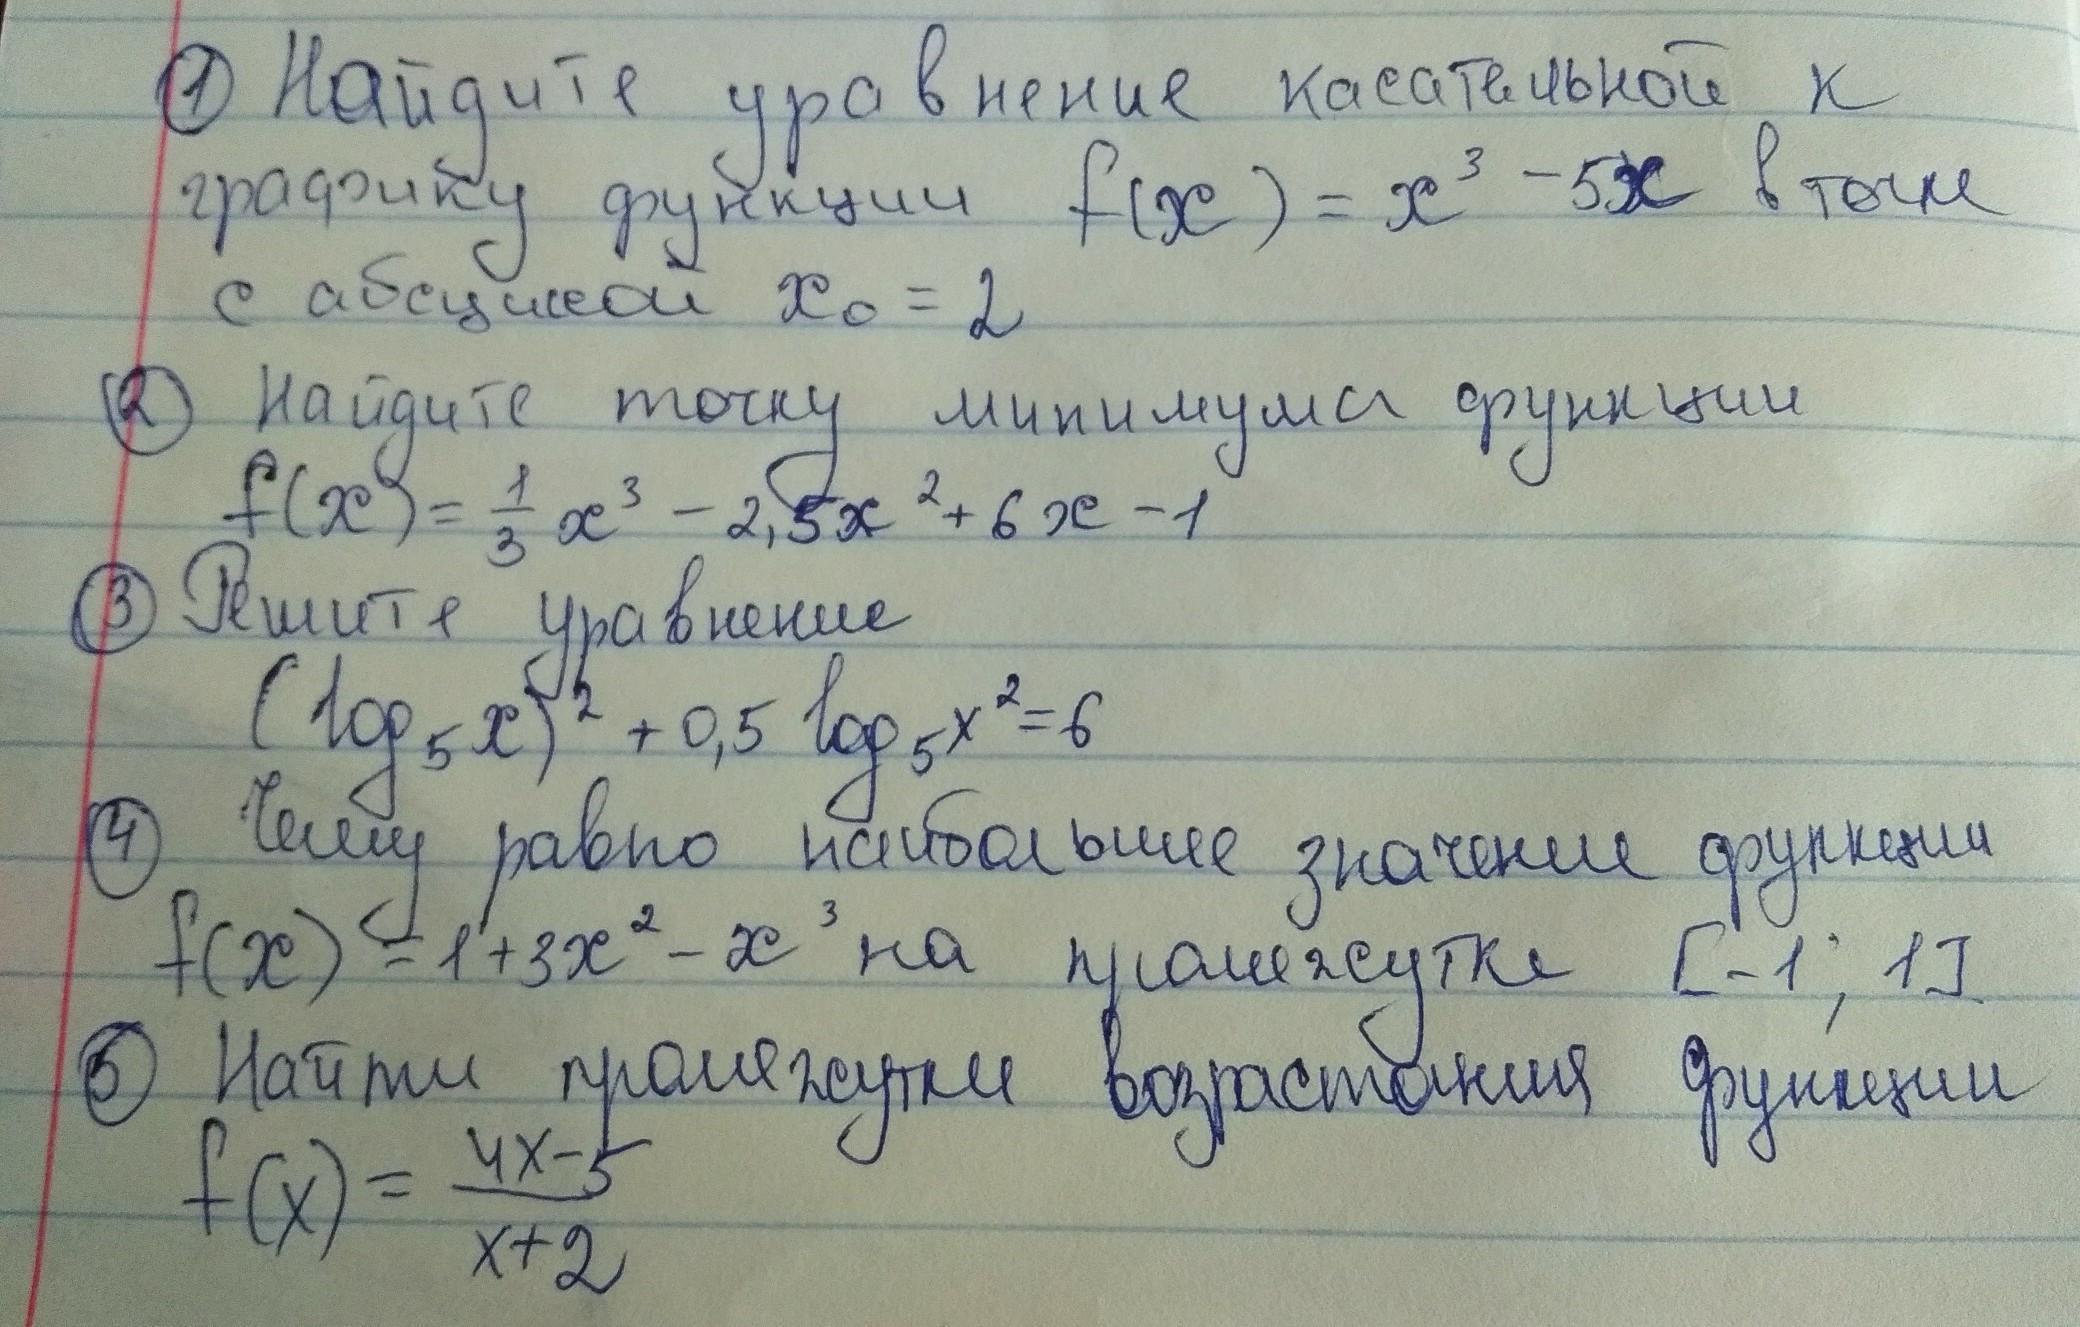 ① Найдите уравнение касательной к
графику функции f(x) = x³ - 5x в точке
с абсциссой x₀ = 2
② Найдите точку минимума функции
f(x) = 1/3 x³ - 2,5x² + 6x - 1
③ Решите уравнение
(log₅x)² + 0,5 log₅x² = 6
④ Чему равно наибольшее значение функции
f(x) = 1 + 3x² - x³ на промежутке [-1; 1]
⑤ Найти промежутки возрастания функции
f(x) = (4x-5)/(x+2)